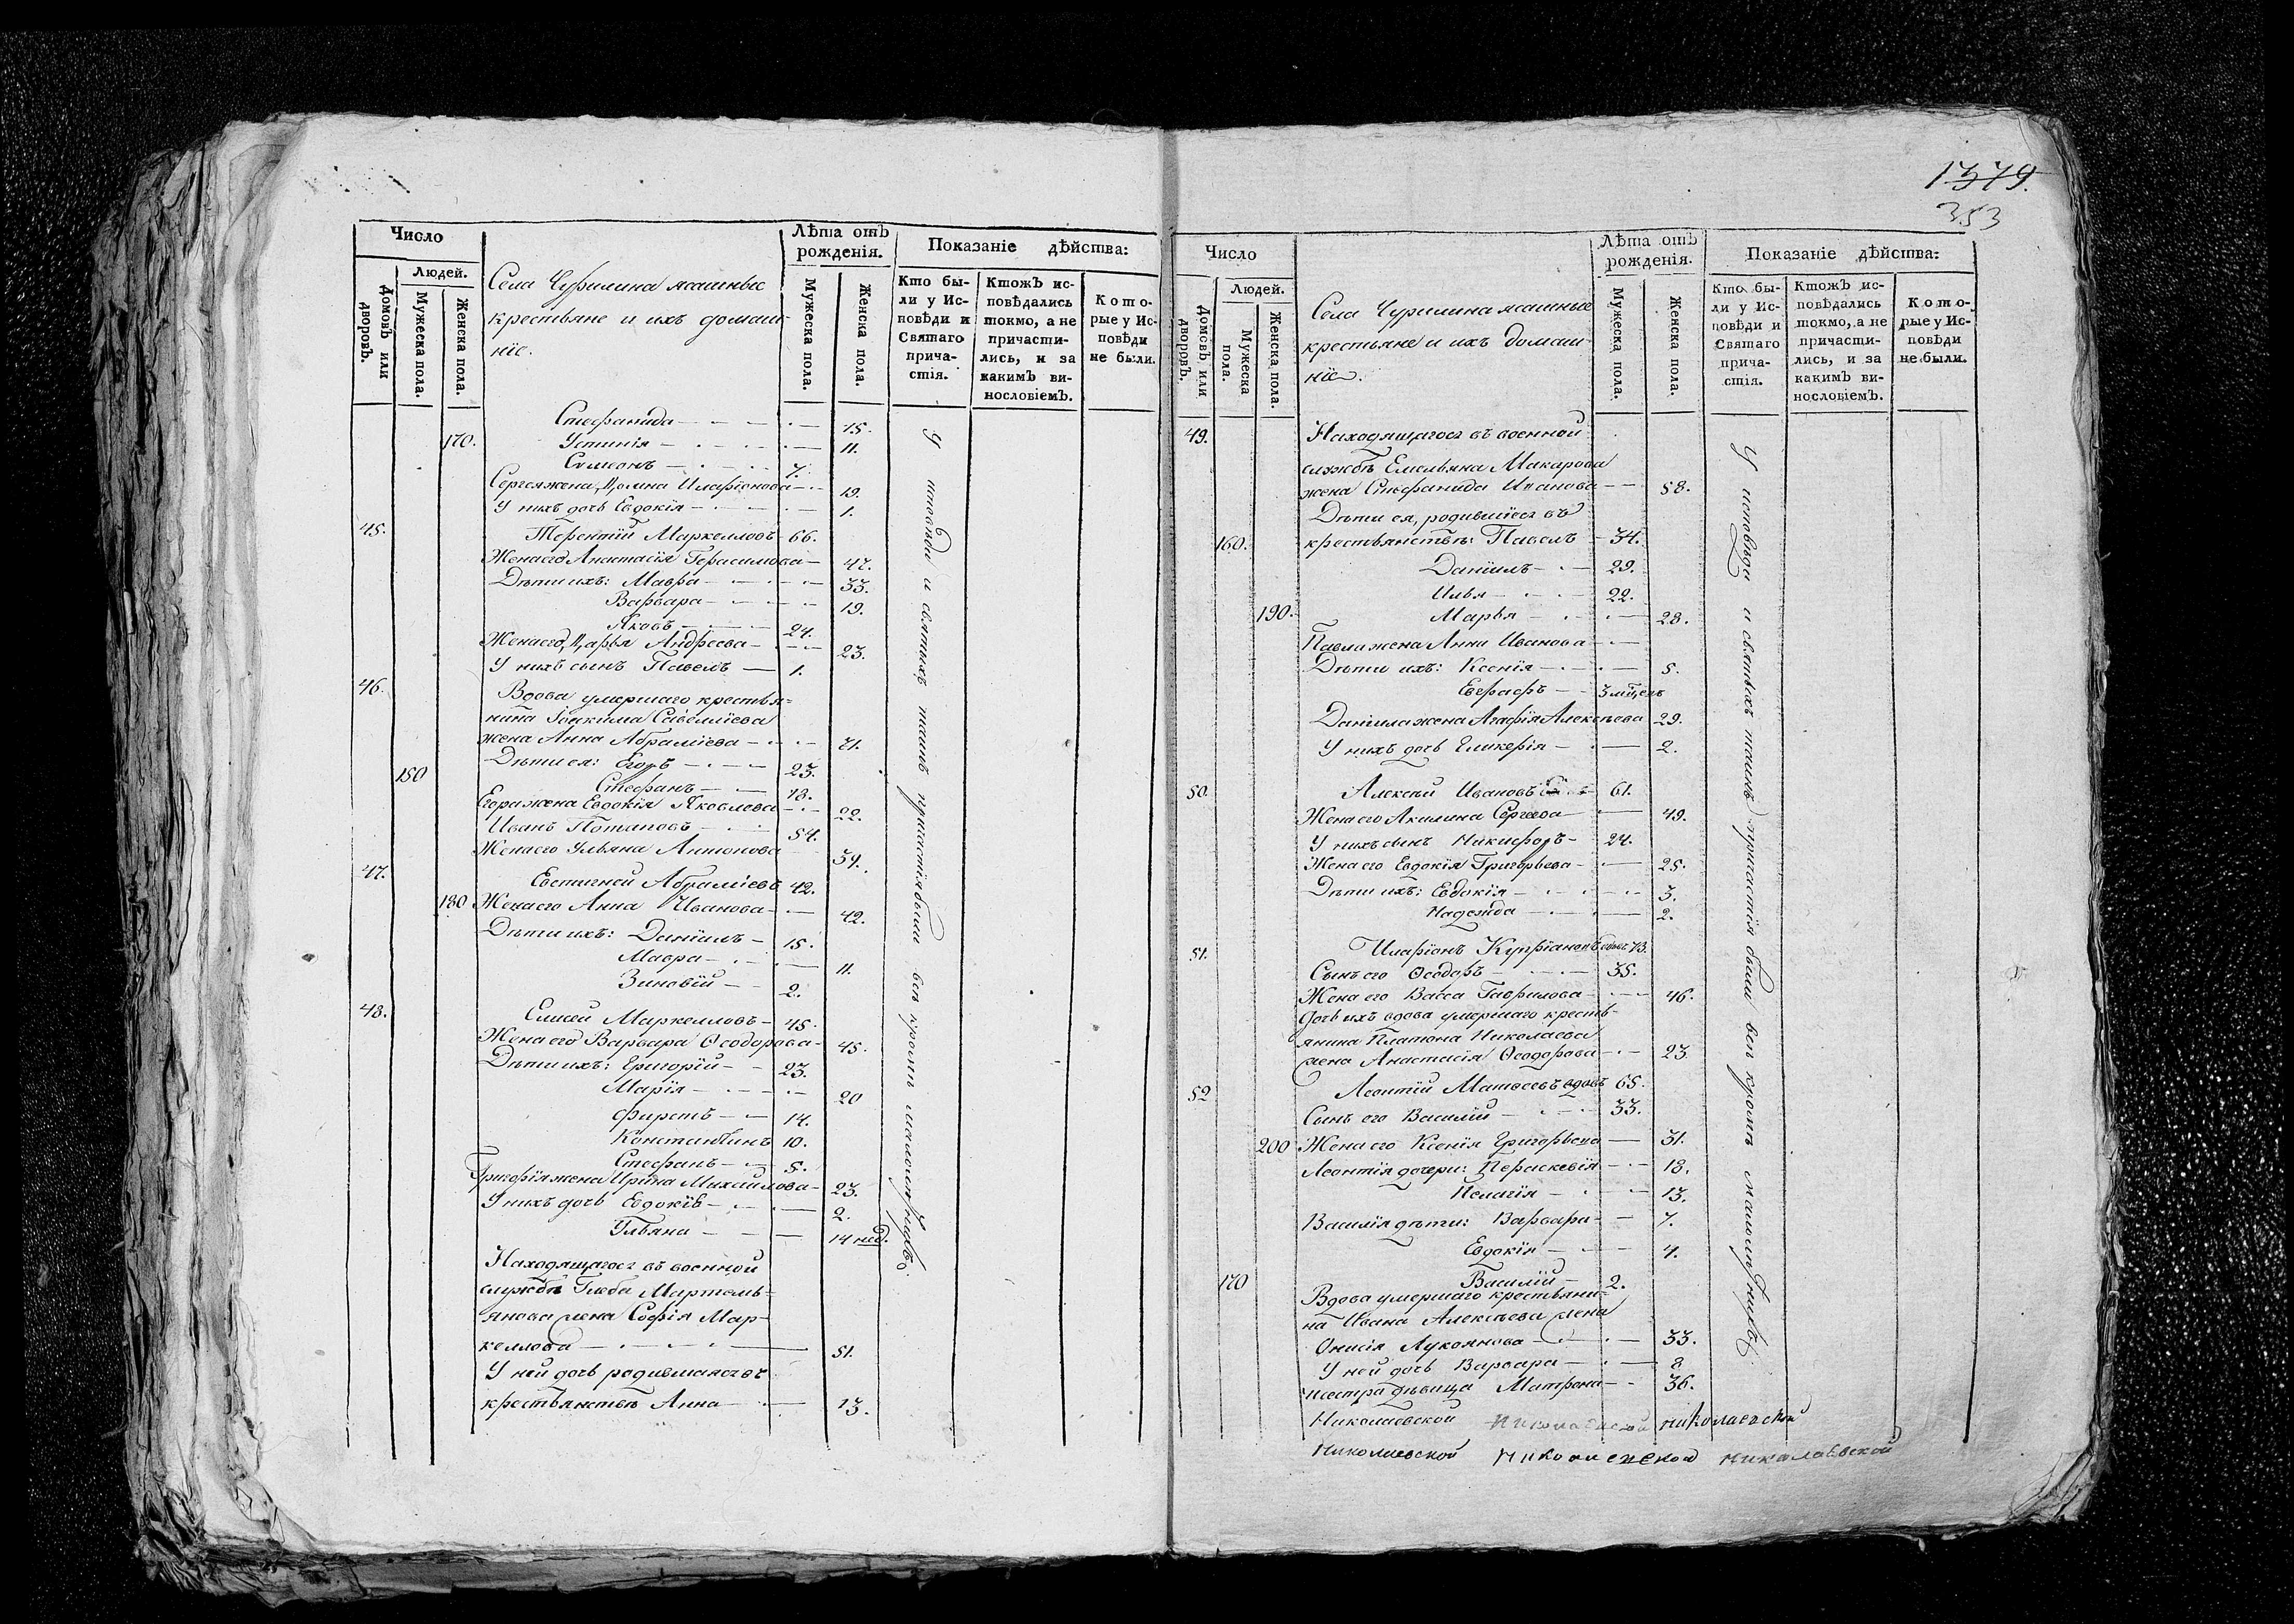 1379.
353
Число
Лѣта отъ рожденія.
Показаніе дѣйства:
Домовъ или дворовъ.
Людей.
Мужеска пола.
Женска пола.
Села Чурилина ясашные
крестьяне и ихъ домаш-
ніе.
Мужеска пола.
Женска пола.
Кто бы-
ли у Ис-
повѣди и
Святаго
прича-
стія.
Ктожъ ис-
повѣдались
токмо, а не
причасти-
лись, и за
какимъ ви-
нословіемъ.
Кото-
рые у Ис-
повѣди
не были.
Стефанида — 15.
170. Устинія — 11.
Сѵмеонъ — 7.
Сергея жена Домна Иларіонова — 19.
У нихъ дочь Евдокія — 1.
45. Терентій Маркелловъ — 66.
Жена его Анастасія Герасимова — 47.
Дѣти ихъ: Мавра — 33.
Варвара — 19.
Яковъ — 24.
Жена его Дарья Андреева — 23.
У нихъ сынъ Павелъ — 1.
46. Вдова умершаго крестья-
нина Іоакима Савелліева
жена Анна Абраміева — 71.
Дѣти ея: Егоръ — 23.
150 Стефанъ — 18.
Егора жена Евдокія Яковлева — 22.
Иванъ Потаповъ — 54.
Жена его Ульяна Антонова 39.
47. Евстигней Абраміевъ 42.
180 Жена его Анна Иванова — 42.
Дѣти ихъ: Даніилъ — 15.
Мавра — 11.
Зиновій — 2.
48. Елисей Маркелловъ — 45.
Жена его Варвара Ѳеодорова — 45.
Дѣти ихъ: Григорій — 23.
Марія — 20
Фирстъ — 14.
Константинъ 10.
Стефанъ — 5.
Григорія жена Ирина Михайлова — 23.
У нихъ дочь Евдокія — 2.
Ульяна — 14 нед.
Находящагося въ военной
службѣ Глеба Мартемь-
янова жена Софія Мар-
келлова — 51.
У ней дочь родившаяся въ
крестьянствѣ Анна — 13.
У исповѣди и святыхъ таинъ причастія были всѣ кромѣ малолѣтнихъ.
Число
Лѣта отъ рожденія.
Показаніе дѣйства:
Домовъ или дворовъ.
Людей.
Мужеска пола.
Женска пола.
Села Чурилина ясашные
крестьяне и ихъ домаш-
ніе.
Мужеска пола.
Женска пола.
Кто бы-
ли у Ис-
повѣди и
Святаго
прича-
стія.
Ктожъ ис-
повѣдались
токмо, а не
причасти-
лись, и за
какимъ ви-
нословіемъ.
Кото-
рые у Ис-
повѣди
не были.
49. Находящагося въ военной
службѣ Емельяна Макарова
жена Стефанида Иванова — 58.
Дѣти ея, родившіеся въ
160. крестьянствѣ: Павелъ — 34.
Даніилъ — 29.
Илья — 22.
190. Марья — 28.
Павла жена Анна Иванова —
Дѣти ихъ: Ксенія — 5.
Евграфъ — 3 мѣсец
Даніила жена Агафія Алексеева 29.
У нихъ дочь Гликерія — 2.
50. Алексѣй Ивановъ — 61.
Жена его Акилина Сергеева — 49.
У нихъ сынъ Никифоръ — 24.
Жена его Евдокія Григорьева — 25.
Дѣти ихъ: Евдокія — 3.
Надежда — 2.
51. Иларіонъ Купріановъ вдовъ 73.
Сынъ его Ѳеодоръ — 35.
Жена его Васса Гаврилова — 46.
Дочь ихъ вдова умершаго кресть-
янина Платона Николаева
жена Анастасія Ѳеодорова — 23
52 Леонтій Матвеевъ вдовъ 65.
Сынъ его Василій — 33.
200 Жена его Ксенія Григорьева — 31.
Леонтія дочери: Параскевія — 18.
Пелагія — 13.
Василія дѣти: Варвара — 7.
Евдокія — 4.
170 Василій — 2.
Вдова умершаго крестьяни-
на Ивана Алексѣева жена
Онисія Лукоянова — 33.
У ней дочь Варвара — 8
Сестра дѣвица Матрона — 36.
Николаевской Николаевской николаевской
Николаевской Николаевской николаевской
У исповѣди и святыхъ таинъ причастія были всѣ кромѣ малолѣтнихъ.